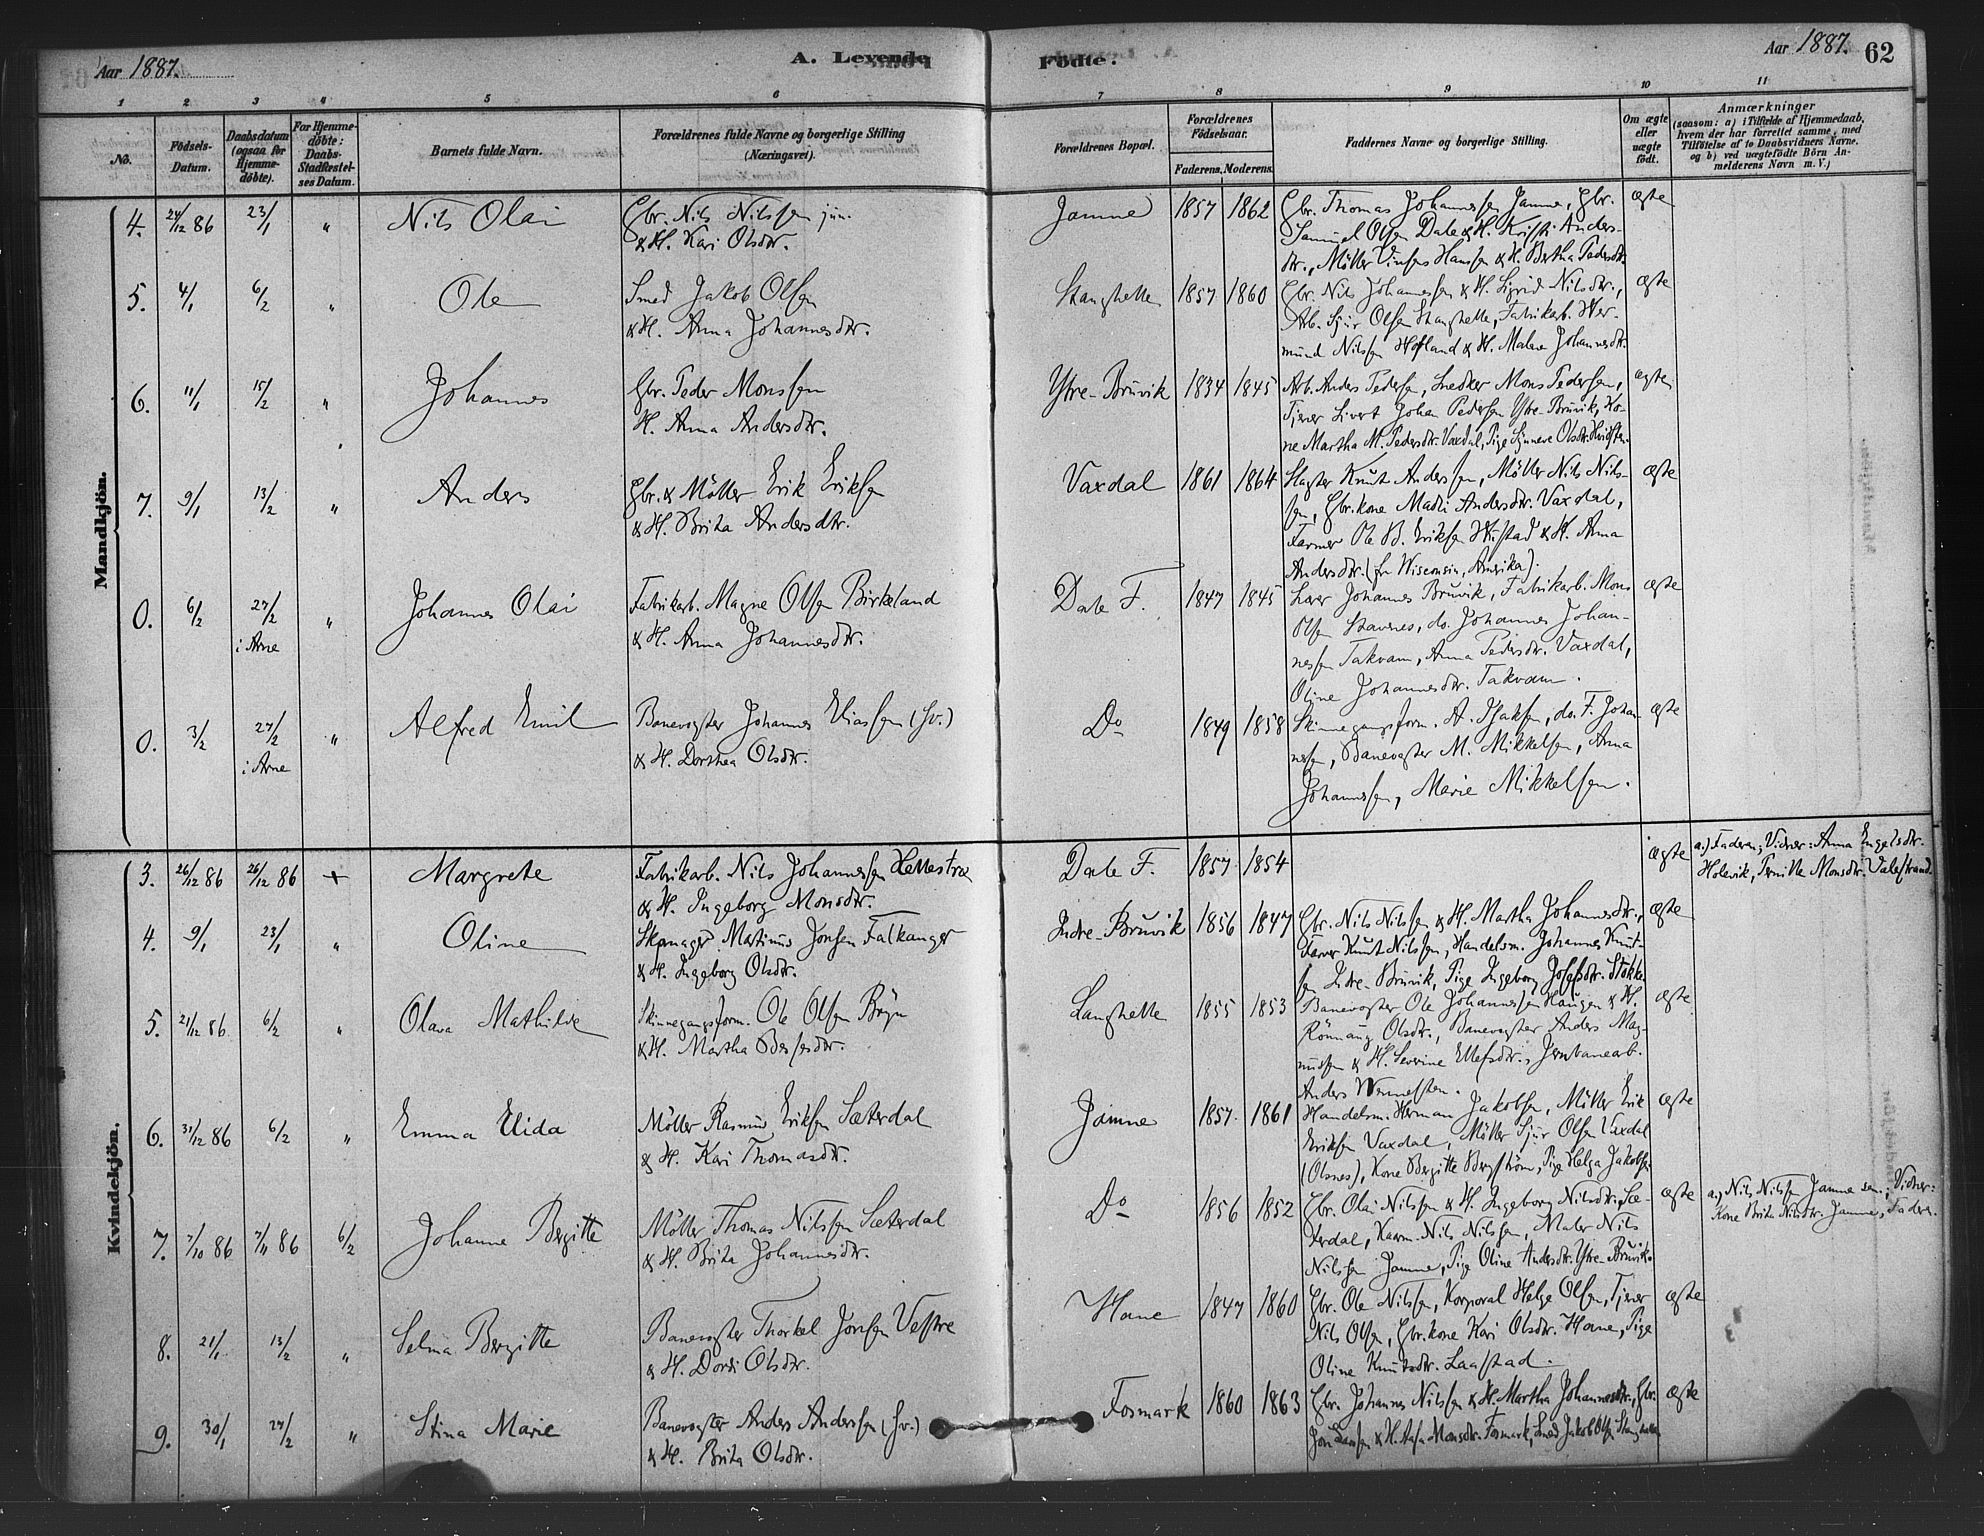 Aar 1887.
A. Levende
Födte.
Aar 1887.
62
1 2 3 4 5 6 7 8 9 10 11
No.
Födsels-
Datum.
Daabsdatum
(ogsaa for
Hjemme-
döbte).
For Hjemme-
döbte:
Daabs-
Stadfæstel-
ses Datum.
Barnets fulde Navn.
Forældrenes fulde Navne og borgerlige Stilling
(Næringsvei).
Forældrenes Bopæl.
Forældrenes
Födselsaar.
Faderens. Moderens.
Faddernes Navne og borgerlige Stilling.
Om ægte
eller
uægte
födt.
Anmærkninger
(saasom: a) i Tilfælde af Hjemmedaab,
hvem der har forrettet samme, med
Tilföielse af to Daabsvidners Navne.
og b) ved uægtefödte Börn An-
melderens Navn m. V.)
Mandkjön.
4. 24/12 86 23/1 " Nils Olai
Gbr. Nils Nilssen jun.
& H. Kari Olsdtr.
Jamne 1857 1862
Gbr. Thomas Johannessen Jamne, Gbr.
Samuel Olsen Dale & H. Kristi Anders-
dtr., Möller Vinsens Hanssen & H. Bertha Pedersdtr.
ægte
5. 4/1 6/2 " Ole
Smed Jakob Olsen
& H. Anna Johannesdtr.
Stanghelle 1857 1860
Gbr. Nils Johannessen & H. Sigrid Nilsdtr.,
Arb. Sjur Olsen Stanghelle, Fabrikarb. Her-
mund Nilssen Hofland & H. Malene Johannesdtr.
ægte
6. 11/1 15/2 " Johannes
Gbr. Peder Monssen
H. Anna Andersdtr.
Ytre-Bruvik 1834 1845
Arb. Anders Pedersen, Snedker Mons Pedersen,
Tjener Sivert Johan Pedersen Ytre-Bruvik, Ko-
ne Martha M. Pedersdtr. Vaxdal, Pige Synneve Olsdtr.
ægte
7. 9/1 13/2 " Anders
Gbr. & Möller Erik Eriksen
& H. Brita Andersdtr.
Vaxdal 1861 1864
Slagter Knut Anderssen, Möller Nils Nils-
sen, Gbr.kone Madli Andersdtr. Vaxdal,
Farmer Ole B. Eriksen & H. Anna
Andersdtr. (fra Wisconsin, Amerika).
ægte
0. 6/2 27/2 " Johannes Olai
i Arne
Fabrikarb. Magne Olsen Birkeland
& H. Anna Johannesdtr.
Dale F. 1847 1845
Lærer Johannes Bruvik, Fabrikarb. Mons
Olsen Stavenes, do. Johannes Johan-
nessen Takvam, Anna Pedersdtr. Vaxdal,
Oline Johannesdtr. Takvam.
ægte
0. 3/2 27/2 " Alfred Emil
i Arne
Banevogter Johannes Eliassen (Sv.)
& H. Dorthea Olsdtr.
Do 1849 1858
Skinnegangsform. A. Isaksen, do. F. Johan-
nesen, Banevogter M. Mikkelsen, Anna
Johannessen, Marie Mikkelsen.
ægte
Kvindekjön.
3. 26/12 86 26/12 86 + Margrete
Fabrikarb. Nils Johannessen Hellestræ
& H. Ingeborg Monsdtr.
Dale F. 1857 1854
ægte
a.) Faderen; Vidner: Anna Engelsdtr.
Holevik, Pernille Monsdtr. Dalestrand.
4. 9/1 23/1 " Oline
Skomager Martinus Jonsen Falkanger
& H. Ingeborg Olsdtr.
Indre-Bruvik 1856 1847
Gbr. Nils Nilssen & H. Martha Johannesdtr.,
Farver Knut Nilssen, Handelsm. Johannes Knut-
sen Indre-Bruvik, Pige Ingeborg Josefsdtr. Stokke
ægte
5. 21/12 86 6/2 " Olava Mathilde
Skinnegangsform. Ole Olsen
& H. Martha
Langhelle 1855 1853
Banevogter Ole Johannessen Haugen & H.
Rönnaug Olsdtr., Banevogter Anders Mag-
nussen & H. Severine Ellefsdtr., Jernbanearb.
Anders
ægte
6. 31/12 86 6/2 " Emma Elida
Möller Rasmus Eriksen Sæterdal
& H. Kari Thomasdtr.
Jamne 1857 1861
Handelsm. Herman Jakobsen, Möller Erik
Eriksen Vaxdal, Möller Sjur Olsen Vaxdal
(Olsnes), Kone Bergitte Bergström, Pige Helga Jakobsen
ægte
7. 7/10 86 7/11 86 6/2 Johanne Bergitte
Möller Thomas Nilssen Sæterdal
& H. Brita Johannesdtr.
Do 1856 1852
Gbr. Olai Nilssen & H. Ingeborg Nilsdtr. Sæ-
terdal, Nils Nilssen, Maler Nils
Nilssen Jamne, Pige Oline Andersdtr. Ytre-Bruvik
ægte
a.) Nils Nilssen Jamne sen.; Vidner:
Kone Brita Nilsdtr. Jamne, Faderen.
8. 21/1 13/2 " Selma Bergitte
Banevogter Thorkel Jonsen Vestre
& H. Dordi Olsdtr.
Hane 1847 1860
Gbr. Ole Nilssen, Korporal Helge Olsen, Tjener
Nils Olsen, Gbr.kone Kari Olsdtr. Hane, Pige
Oline Knutsdtr. Laastad.
ægte
9. 30/1 27/2 " Stina Marie
Banevogter Anders Anderssen (Sv.)
& H. Brita Olsdtr.
Fosmark 1860 1863
Gbr. Johannes Nilssen & H. Martha Johannesdtr., Gbr.
Jon & H. Monsdtr. Fosmark, Smed Jakob Olsen Stanghelle
ægte